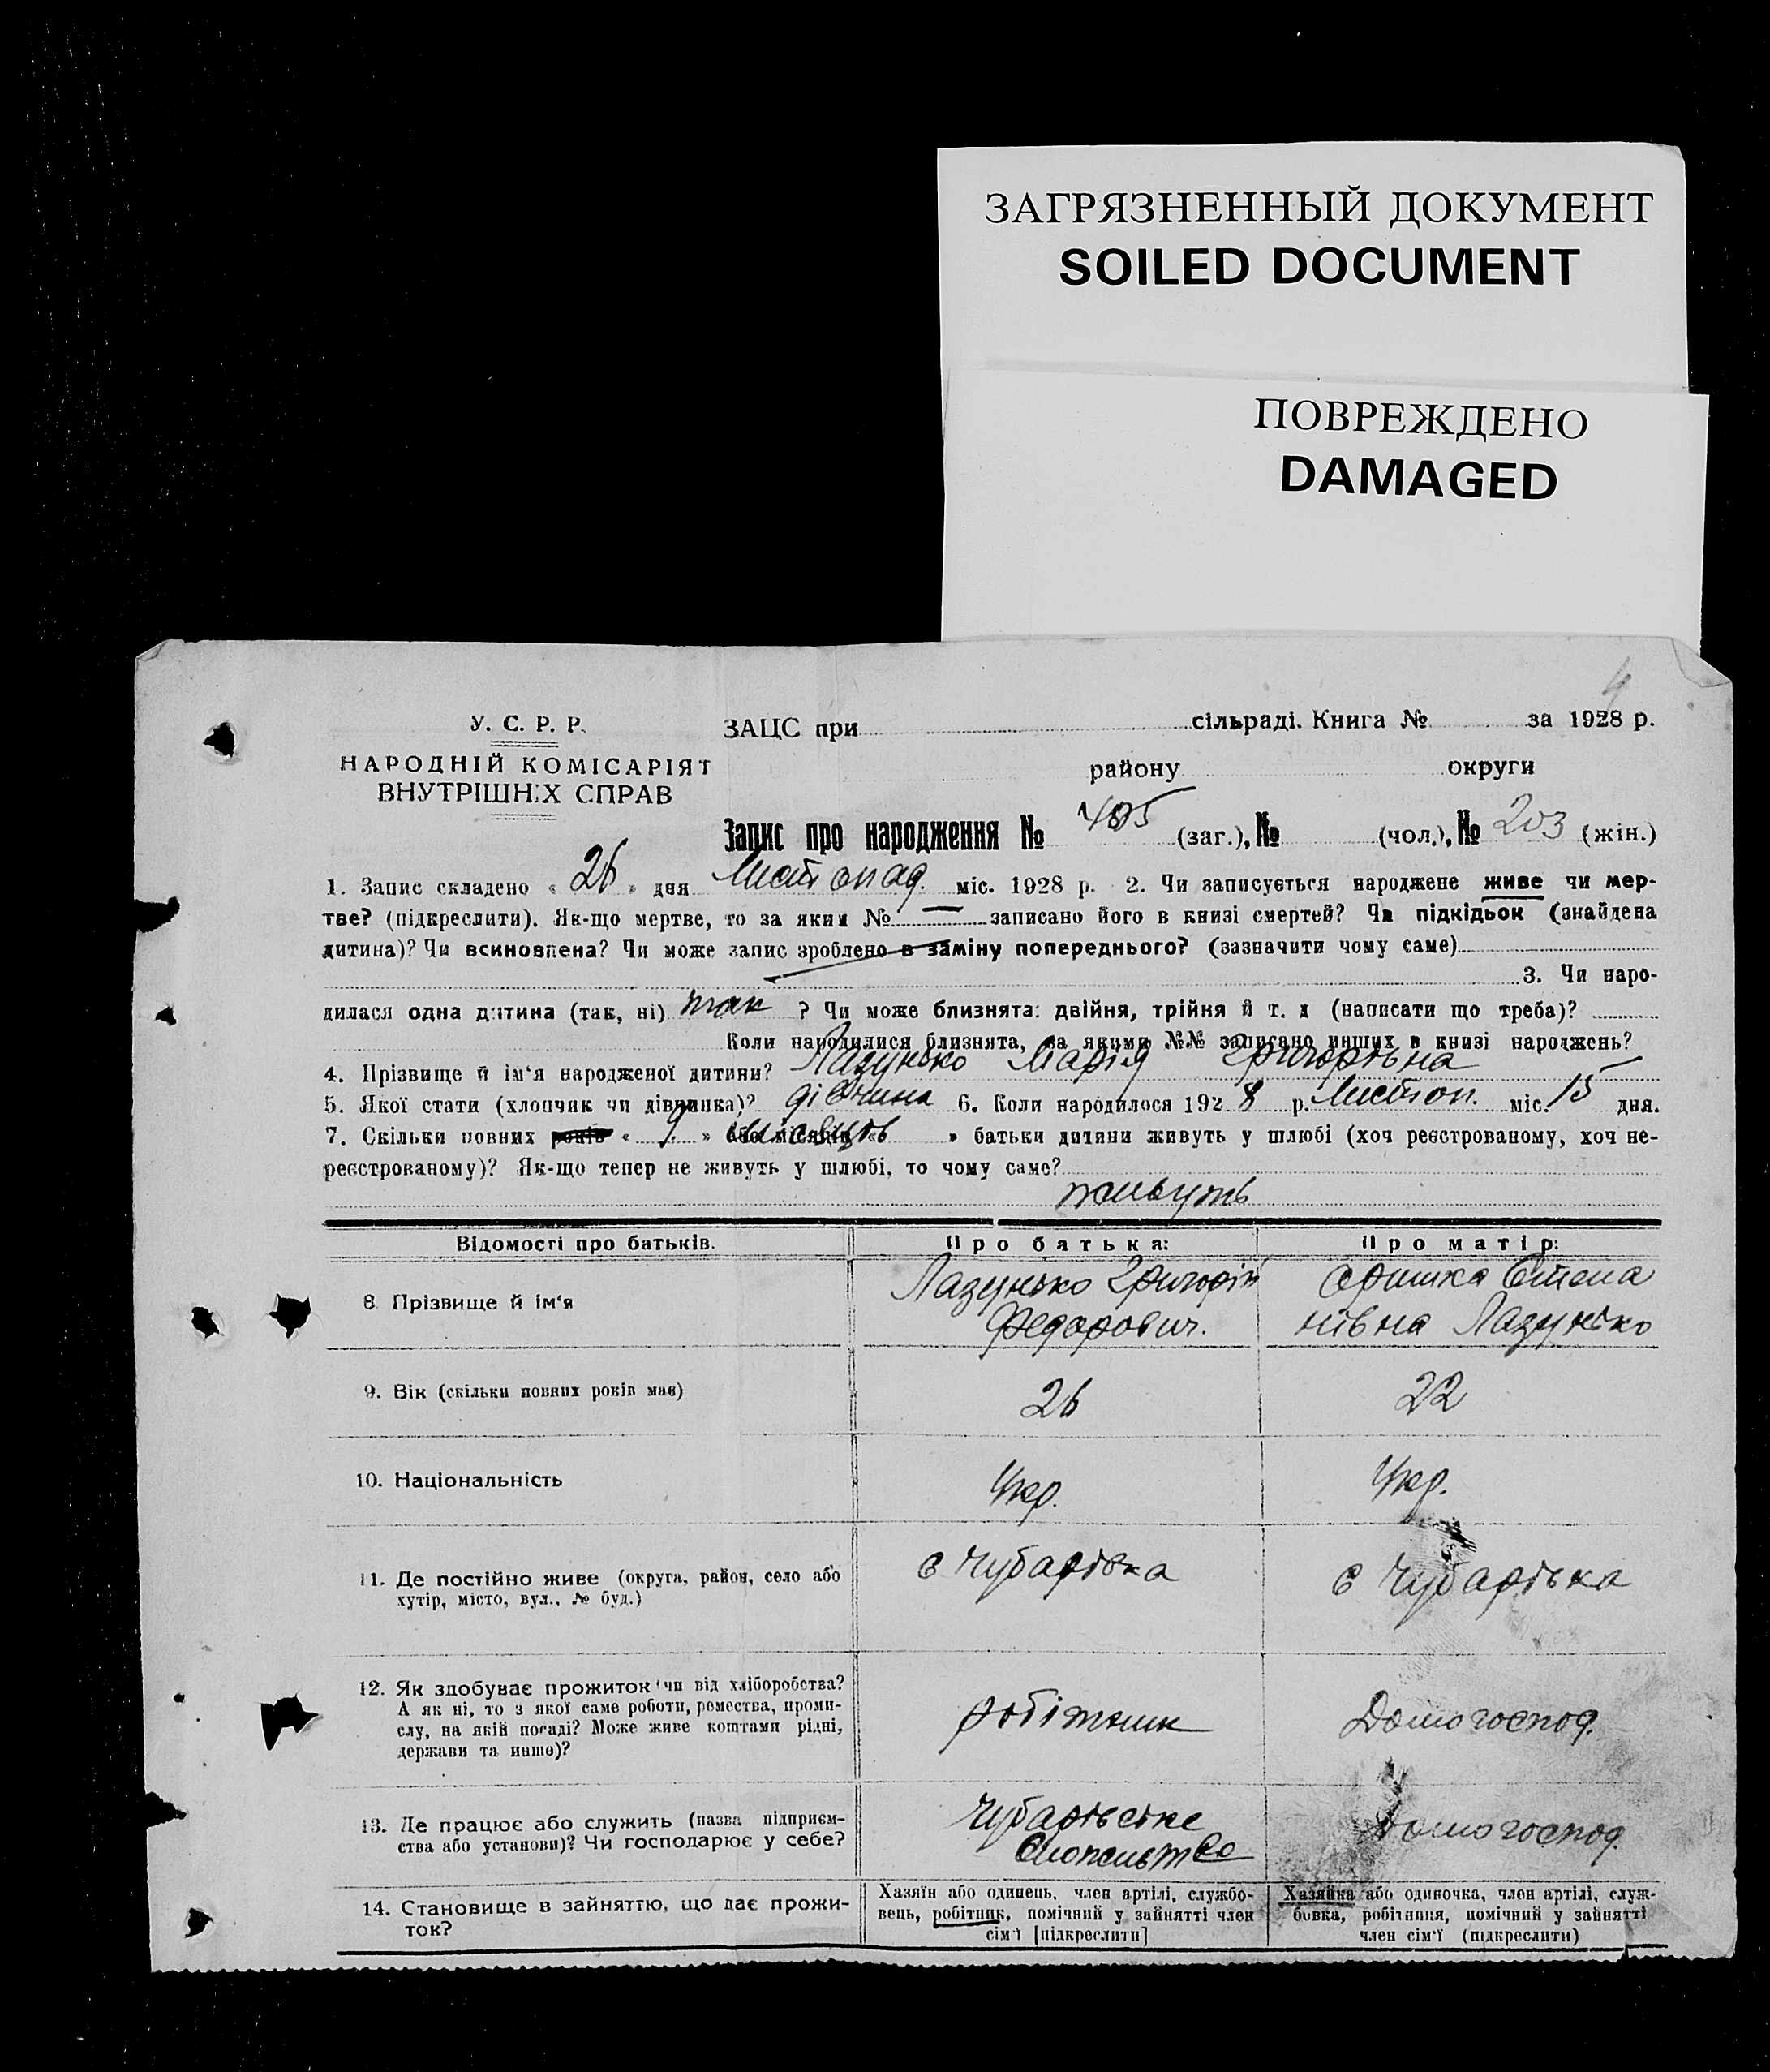 ЗАГРЯЗНЕННЫЙ ДОКУМЕНТ
SOILED DOCUMENT
ПОВРЕЖДЕНО
DAMAGED
4
У. С. Р. Р.
НАРОДНІЙ КОМІСАРІЯТ
ВНУТРІШНІХ СПРАВ
ЗАЦС при сільраді. Книга № за 1928 р.
району округи
Запис про народження № 405 (заг.), № (чол.), № 203 (жін.)
1. Запис складено « 26 » дня Листопад. міс. 1928 р. 2. Чи записується народжене живе чи мер-
тве? (підкреслити). Як-що мертве, то за яким № — записано його в книзі смертей? Чи підкідьок (знайдена
дитина)? Чи всиновлена? Чи може запис зроблено в заміну попереднього? (зазначити чому саме)
3. Чи наро-
дилася одна дитина (так, ні) так ? Чи може близнята: двійня, трійня й т. д (написати що треба)?
Коли народилися близнята, за якими №№ записано инших в книзі народжень?
4. Прізвище й ім'я народженої дитини? Лазунько Марія Григорівна
5. Якої стати (хлопчик чи дівчинка)? дівчина 6. Коли народилося 1928 р. Листоп. міс. 15 дня.
7. Скільки повних років « 9 » або місяців « » батьки дитини живуть у шлюбі (хоч реєстрованому, хоч не-
реєстрованому)? Як-що тепер не живуть у шлюбі, то чому саме?
живуть
Відомості про батьків. Про батька: Про матір:
8. Прізвище й ім'я
Лазунько Григорій
Федорович.
Оришка Степа
нівна Лазунько
9. Вік (скільки повних років має) 26 22
10. Національність Укр. Укр.
11. Де постійно живе (округа, район, село або
хутір, місто, вул., № буд.)
с Чубарівка
с Чубарівка
12. Як здобуває прожиток чи від хліборобства?
А як ні, то з якої саме роботи, ремества, проми-
слу, на якій посаді? Може живе коштами рідні,
держави та инше)?
робітник
Домогоспод.
13. Де працює або служить (назва підприєм-
ства або установи)? Чи господарює у себе?
Чубарівське
Домогоспод.
14. Становище в зайняттю, що дає прожи-
ток?
Хазяїн або одинець, член артілі, службо-
вець, робітник, помічний у зайнятті член
сім'ї [підкреслити]
Хазяйка або одиночка, член артілі, служ-
бовка, робітниця, помічний у зайнятті
член сім'ї (підкреслити)